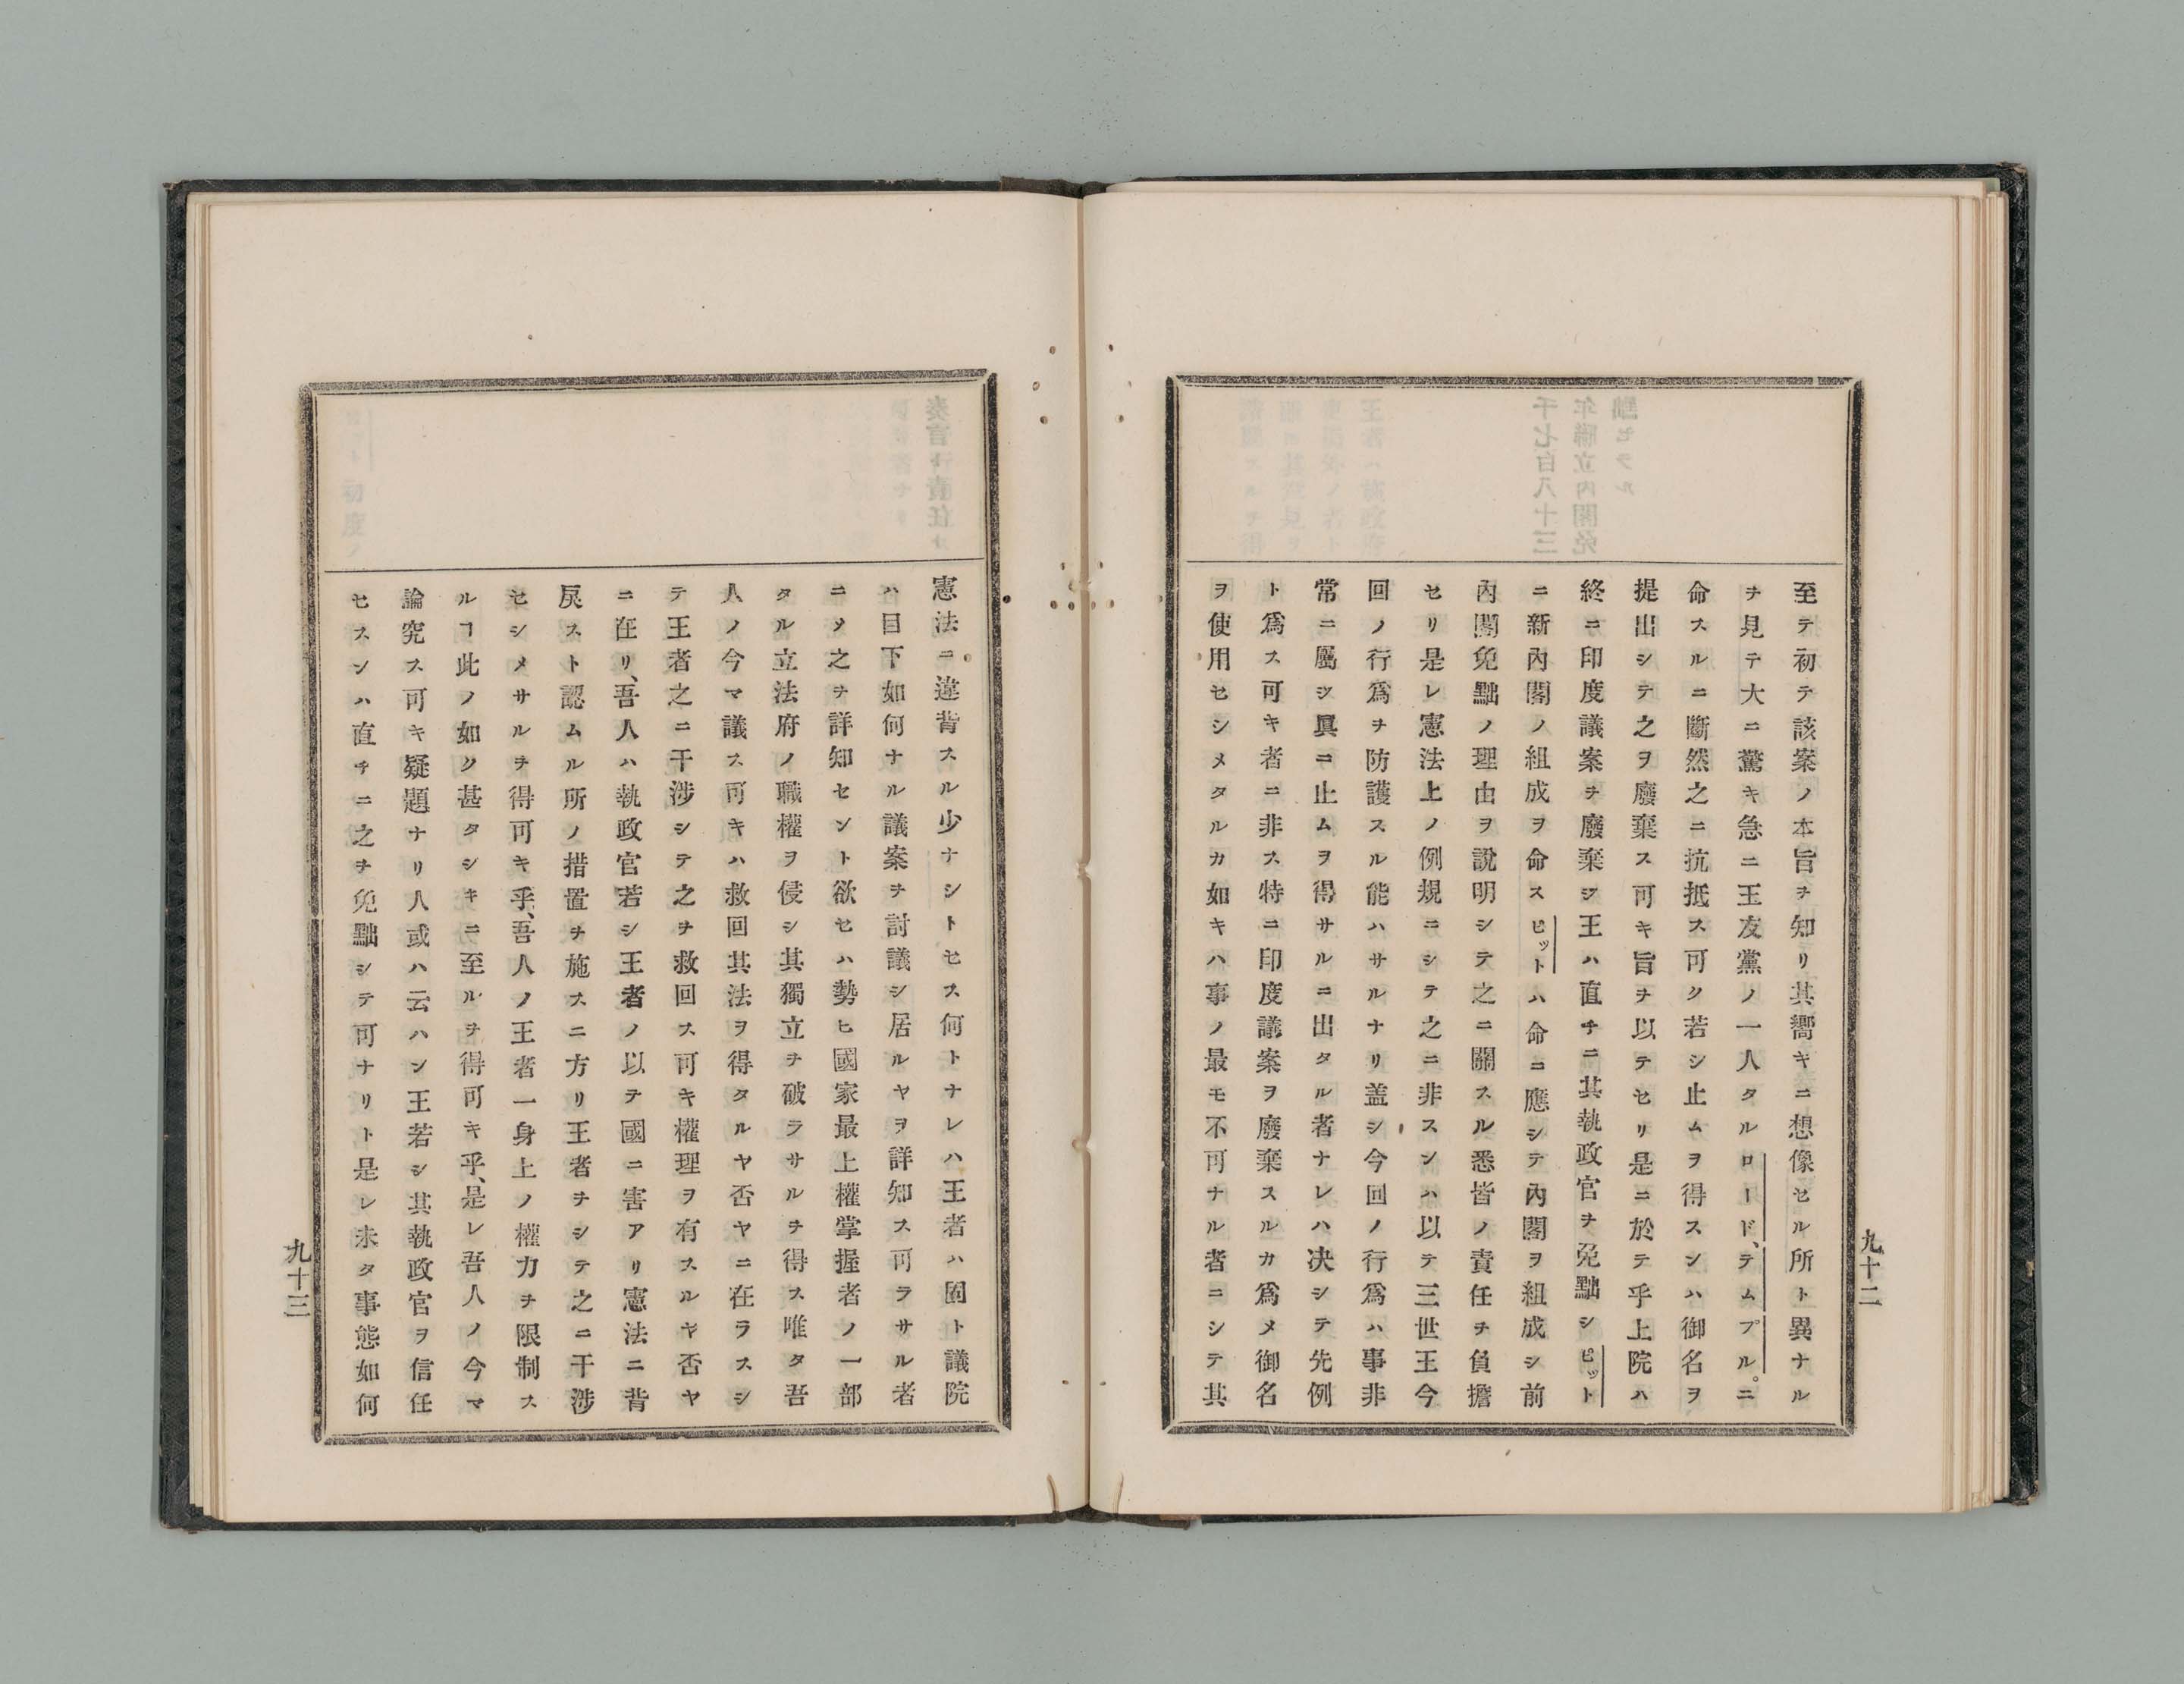 至テ初テ該案ノ本旨ヲ知リ其嚮キニ想像セル所ト異ナル
ヲ見テ大ニ驚キ急ニ王友黨ノ一人タルロード、テムプル。ニ
命スルニ斷然之ニ抗抵ス可ク若シ止ムヲ得スンハ御名ヲ
提出シテ之ヲ廢棄ス可キ旨ヲ以テセリ是ニ於テ乎上院ハ
終ニ印度議案ヲ廢棄シ王ハ直チニ其執政官ヲ免黜シピット
ニ新內閣ノ組成ヲ命スピットハ命ニ應シテ內閣ヲ組成シ前
內閣免黜ノ理由ヲ說明シテ之ニ關スル悉皆ノ責任ヲ負擔
セリ是レ憲法上ノ例規ニシテ之ニ非スンハ以テ三世王今
回ノ行爲ヲ防護スル能ハサルナリ盖シ今回ノ行爲ハ事非
常ニ屬シ眞ニ止ムヲ得サルニ出タル者ナレハ决シテ先例
ト爲ス可キ者ニ非ス特ニ印度議案ヲ廢棄スルカ爲メ御名
ヲ使用セシメタルカ如キハ事ノ最モ不可ナル者ニシテ其
九十二
憲法ニ違背スル少ナシトセス何トナレハ王者ハ固ト議院
ハ目下如何ナル議案ヲ討議シ居ルヤヲ詳知ス可ラサル者
ニメ之ヲ詳知セント欲セハ勢ヒ國家最上權掌握者ノ一部
タル立法府ノ職權ヲ侵シ其獨立ヲ破ラサルヲ得ス唯タ吾
人ノ今マ議ス可キハ救回其法ヲ得タルヤ否ヤニ在ラスシ
テ王者之ニ干涉シテ之ヲ救回ス可キ權理ヲ有スルヤ否ヤ
ニ在リ、吾人ハ執政官若シ王者ノ以テ國ニ害アリ憲法ニ背
戾スト認ムル所ノ措置ヲ施スニ方リ王者ヲシテ之ニ干涉
セシメサルヲ得可キ乎、吾人ノ王者一身上ノ權力ヲ限制ス
ルヿ此ノ如ク甚タシキニ至ルヲ得可キ乎、是レ吾人ノ今マ
論究ス可キ疑題ナリ人或ハ云ハン王若シ其執政官ヲ信任
セスンハ直チニ之ヲ免黜シテ可ナリト是レ未タ事態如何
九十三